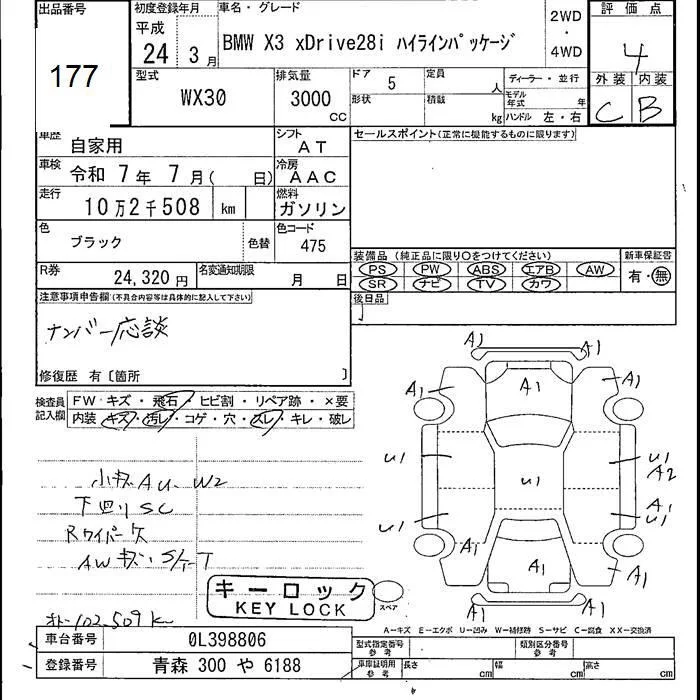 出品番号
177
初度登録年月
平成
24 3月
車名・グレード
BMW X3 xDrive28i ハイラインパッケージ
2WD
・
4WD
評価点
4
外装 内装
C B
型式
WX30
排気量
3000
CC
ドア 5
定員 人
形状
積載 kg
ディーラー・並行
モデル年式 年
ハンドル 左・右
車歴 自家用
シフト AT
セールスポイント(正常に機能するものに限ります)
車検 令和 7年 7月( 日)
冷房 AAC
走行 10万2千508 km
燃料 ガソリン
色 ブラック
色替
色コード 475
装備品 (純正品に限り〇をつけてください)
新車保証書
PS PW ABS エアB AW
SR ナビ TV カワ
有・無
R券 24,320円
名変通知期限 月 日
後日品
注意事項申告欄(不具合内容等は具体的に記入して下さい)
ナンバー応談
修復歴 有〔箇所 〕
検査員記入欄
FW キズ・飛石・ヒビ割・リペア跡・×要
内装 キズ・汚レ・コゲ・穴・スレ・キレ・破レ
A1
A1
A1
A1
A1
U1
U1
U1
A2
A1
U1
U1
A1
A1
A1
A1
A1
小キズAU、W2
下回りSC
Rワイパー欠
AWキズ・S/T-T
キーロック
KEY LOCK
スペア
オドー102,509K
A-キズ E-エクボ U-凹み W-補修跡 S-サビ C-腐食 XX-交換済
車台番号 0L398806
型式指定番号 参考
類別区分番号 参考
登録番号 青森 300 や 6188
車庫証明用 参考
長さ cm
幅 cm
高さ cm